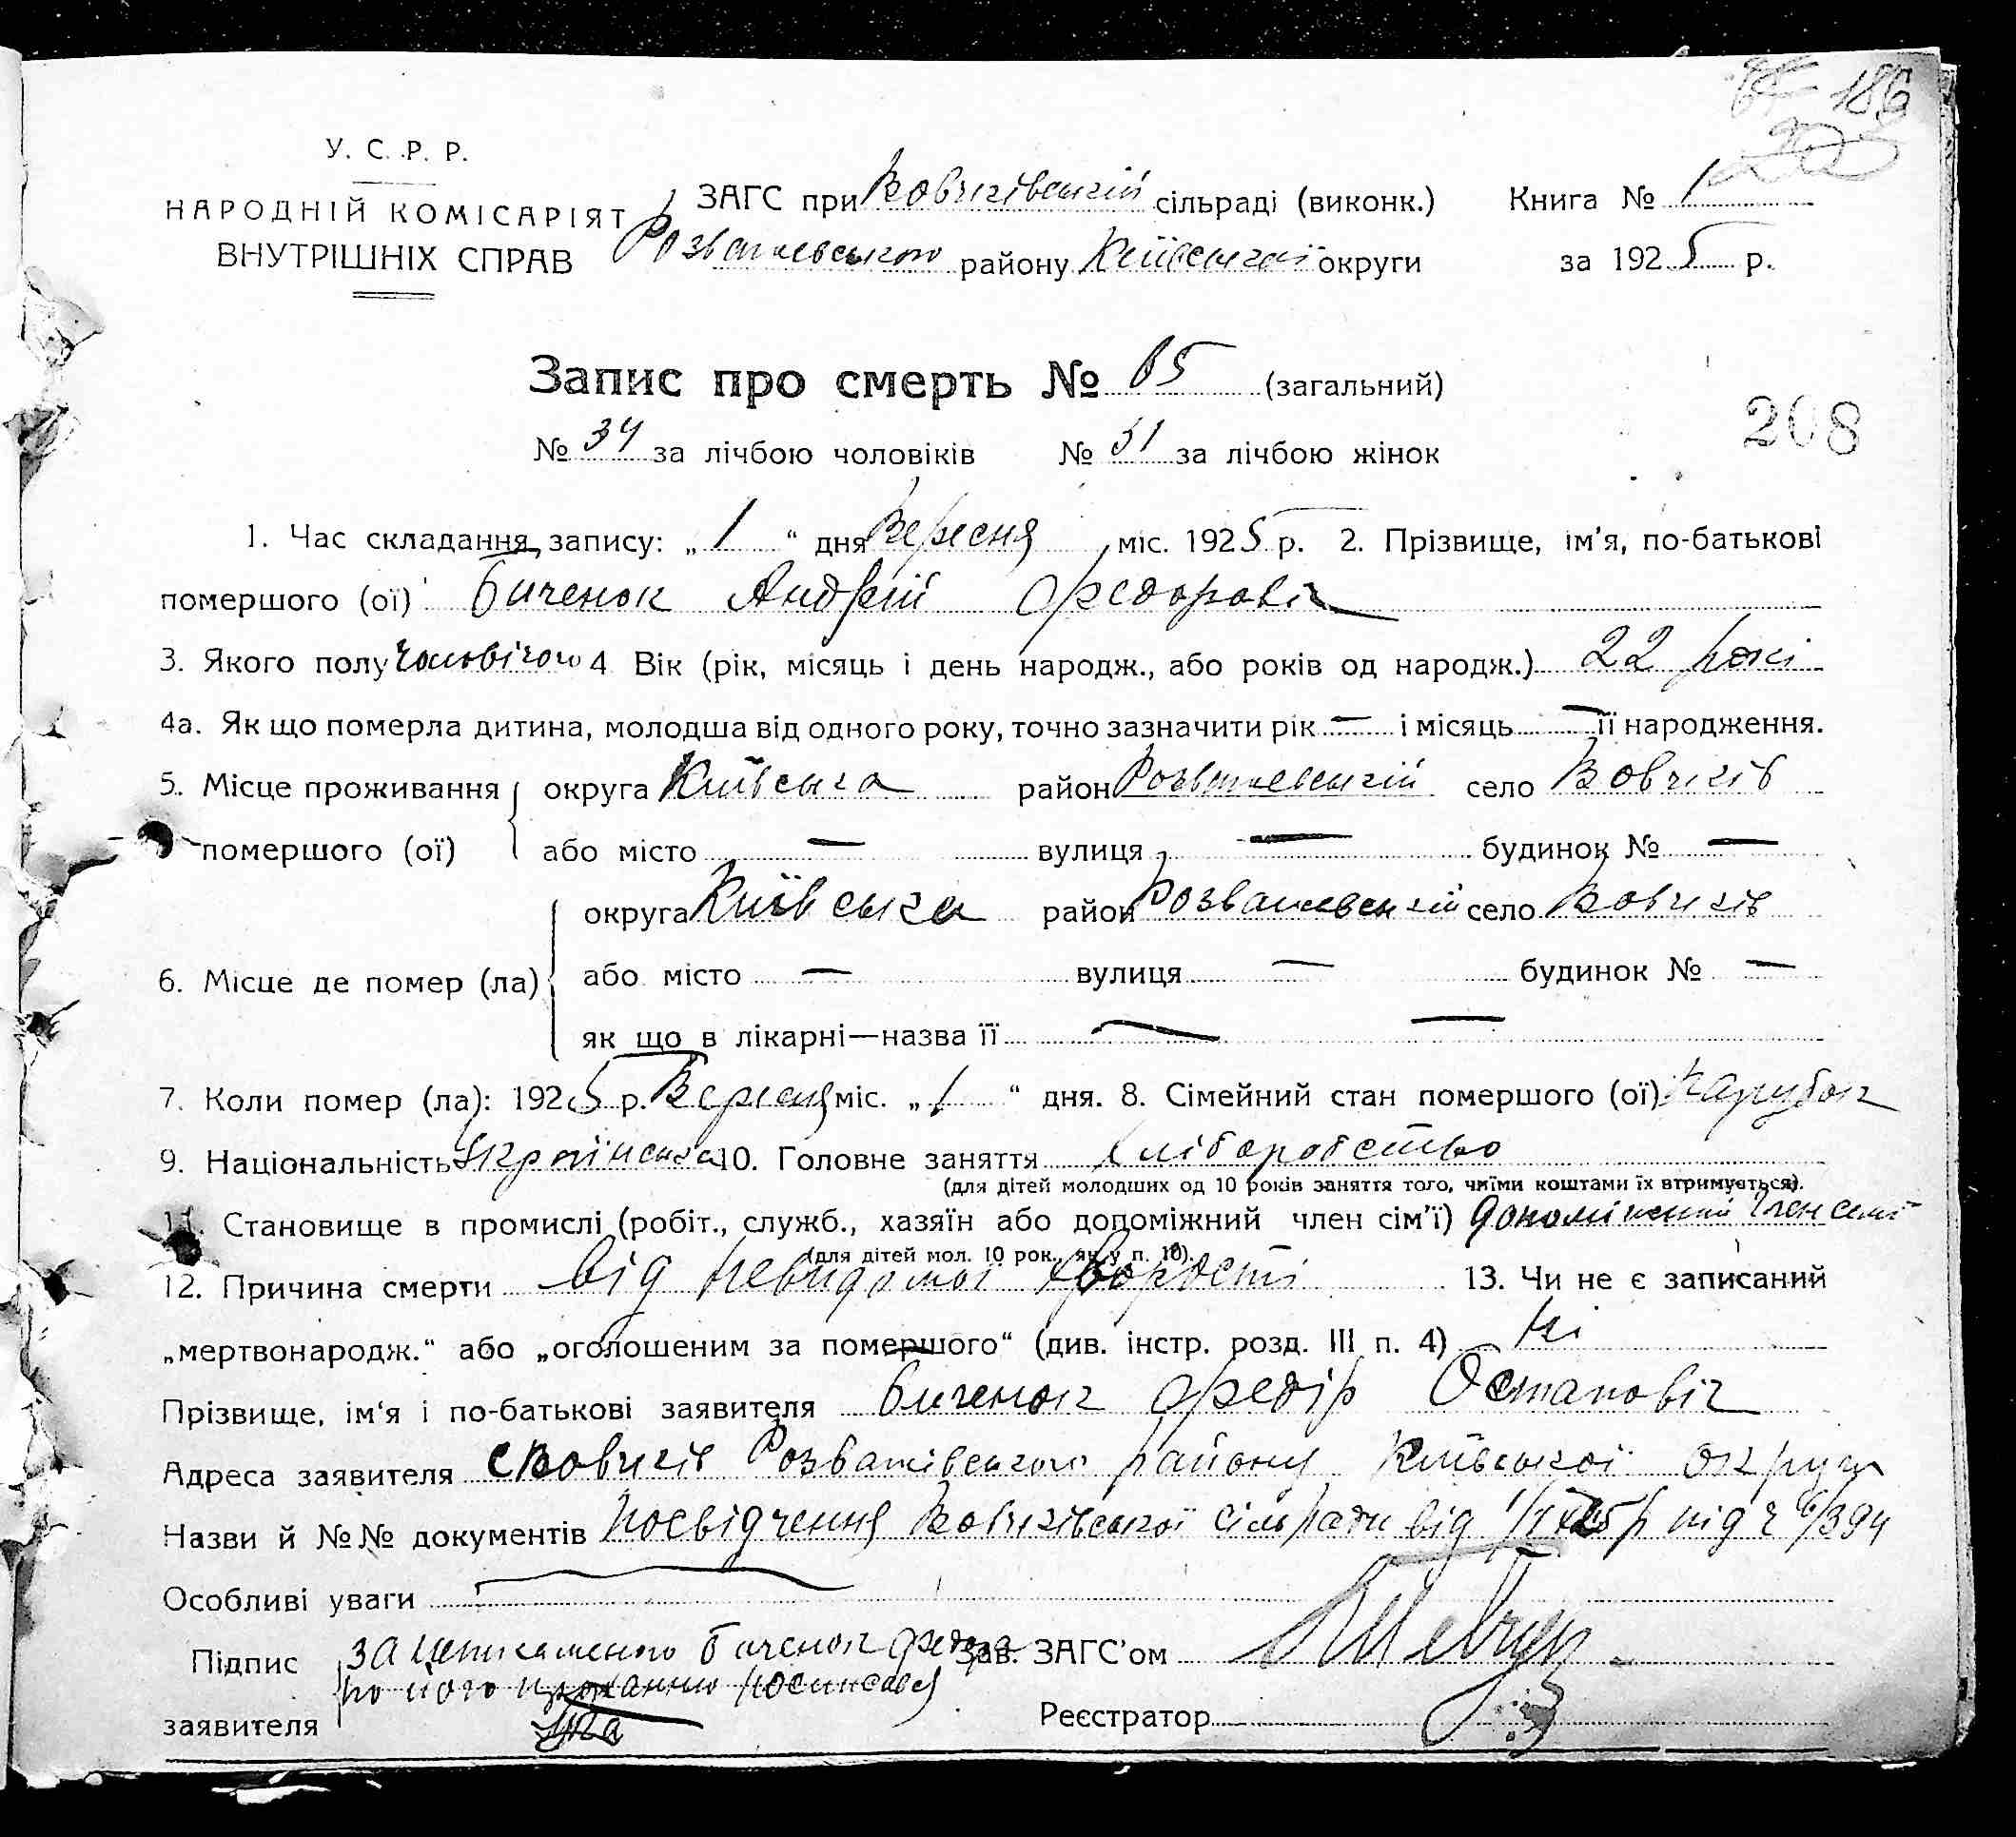 186
У. С. Р. Р.
НАРОДНІЙ КОМІСАРІЯТ
ВНУТРІШНІХ СПРАВ
ЗАГС при Вовчківській сільраді (виконк.) Книга № 1
Розважевського району Київської округи за 1925 р.
Запис про смерть № 65 (загальний)
208
№ 34 за лічбою чоловіків № 31 за лічбою жінок
1. Час складання запису: „ 1 “ дня Вересня міс. 1925 р. 2. Прізвище, ім'я, по-батькові
помершого (ої) Биченок Андрій Федоровіч
3. Якого полу Чоловічого 4 Вік (рік, місяць і день народж., або років од народж.) 22 роки
4а. Як що померла дитина, молодша від одного року, точно зазначити рік — і місяць — її народження.
5. Місце проживання округа Київська район Розважевській село Вовчків
помершого (ої) або місто — вулиця — будинок № —
округа Київська район Розважевській село Вовчків
6. Місце де помер (ла) або місто — вулиця — будинок № —
як що в лікарні—назва її — —
7. Коли помер (ла): 1925 р. Вересня міс. „ 1 “ дня. 8. Сімейний стан помершого (ої) Парубок
9. Національність Українська 10. Головне заняття Хліборобство
(для дітей молодших од 10 років заняття того, чиїми коштами їх втримується).
11. Становище в промислі (робіт., служб., хазяїн або допоміжний член сім'ї) допоміжний член семї
(для дітей мол. 10 рок., як у п. 10).
12. Причина смерти від невидомої хворости 13. Чи не є записаний
„мертвонародж.“ або „оголошеним за помершого“ (див. інстр. розд. III п. 4) Ні
Прізвище, ім'я і по-батькові заявителя Биченок Федір Остаповіч
Адреса заявителя с Вовчків Розважівського району Київської округи
Назви й №№ документів Посвідчення Вовчківської сільради від під ч 6/394
Особливі уваги
Підпис за неписьменого Биченок Федора Зав. ЗАГС'ом Шевчук
по його проханню росписався
заявителя Реєстратор